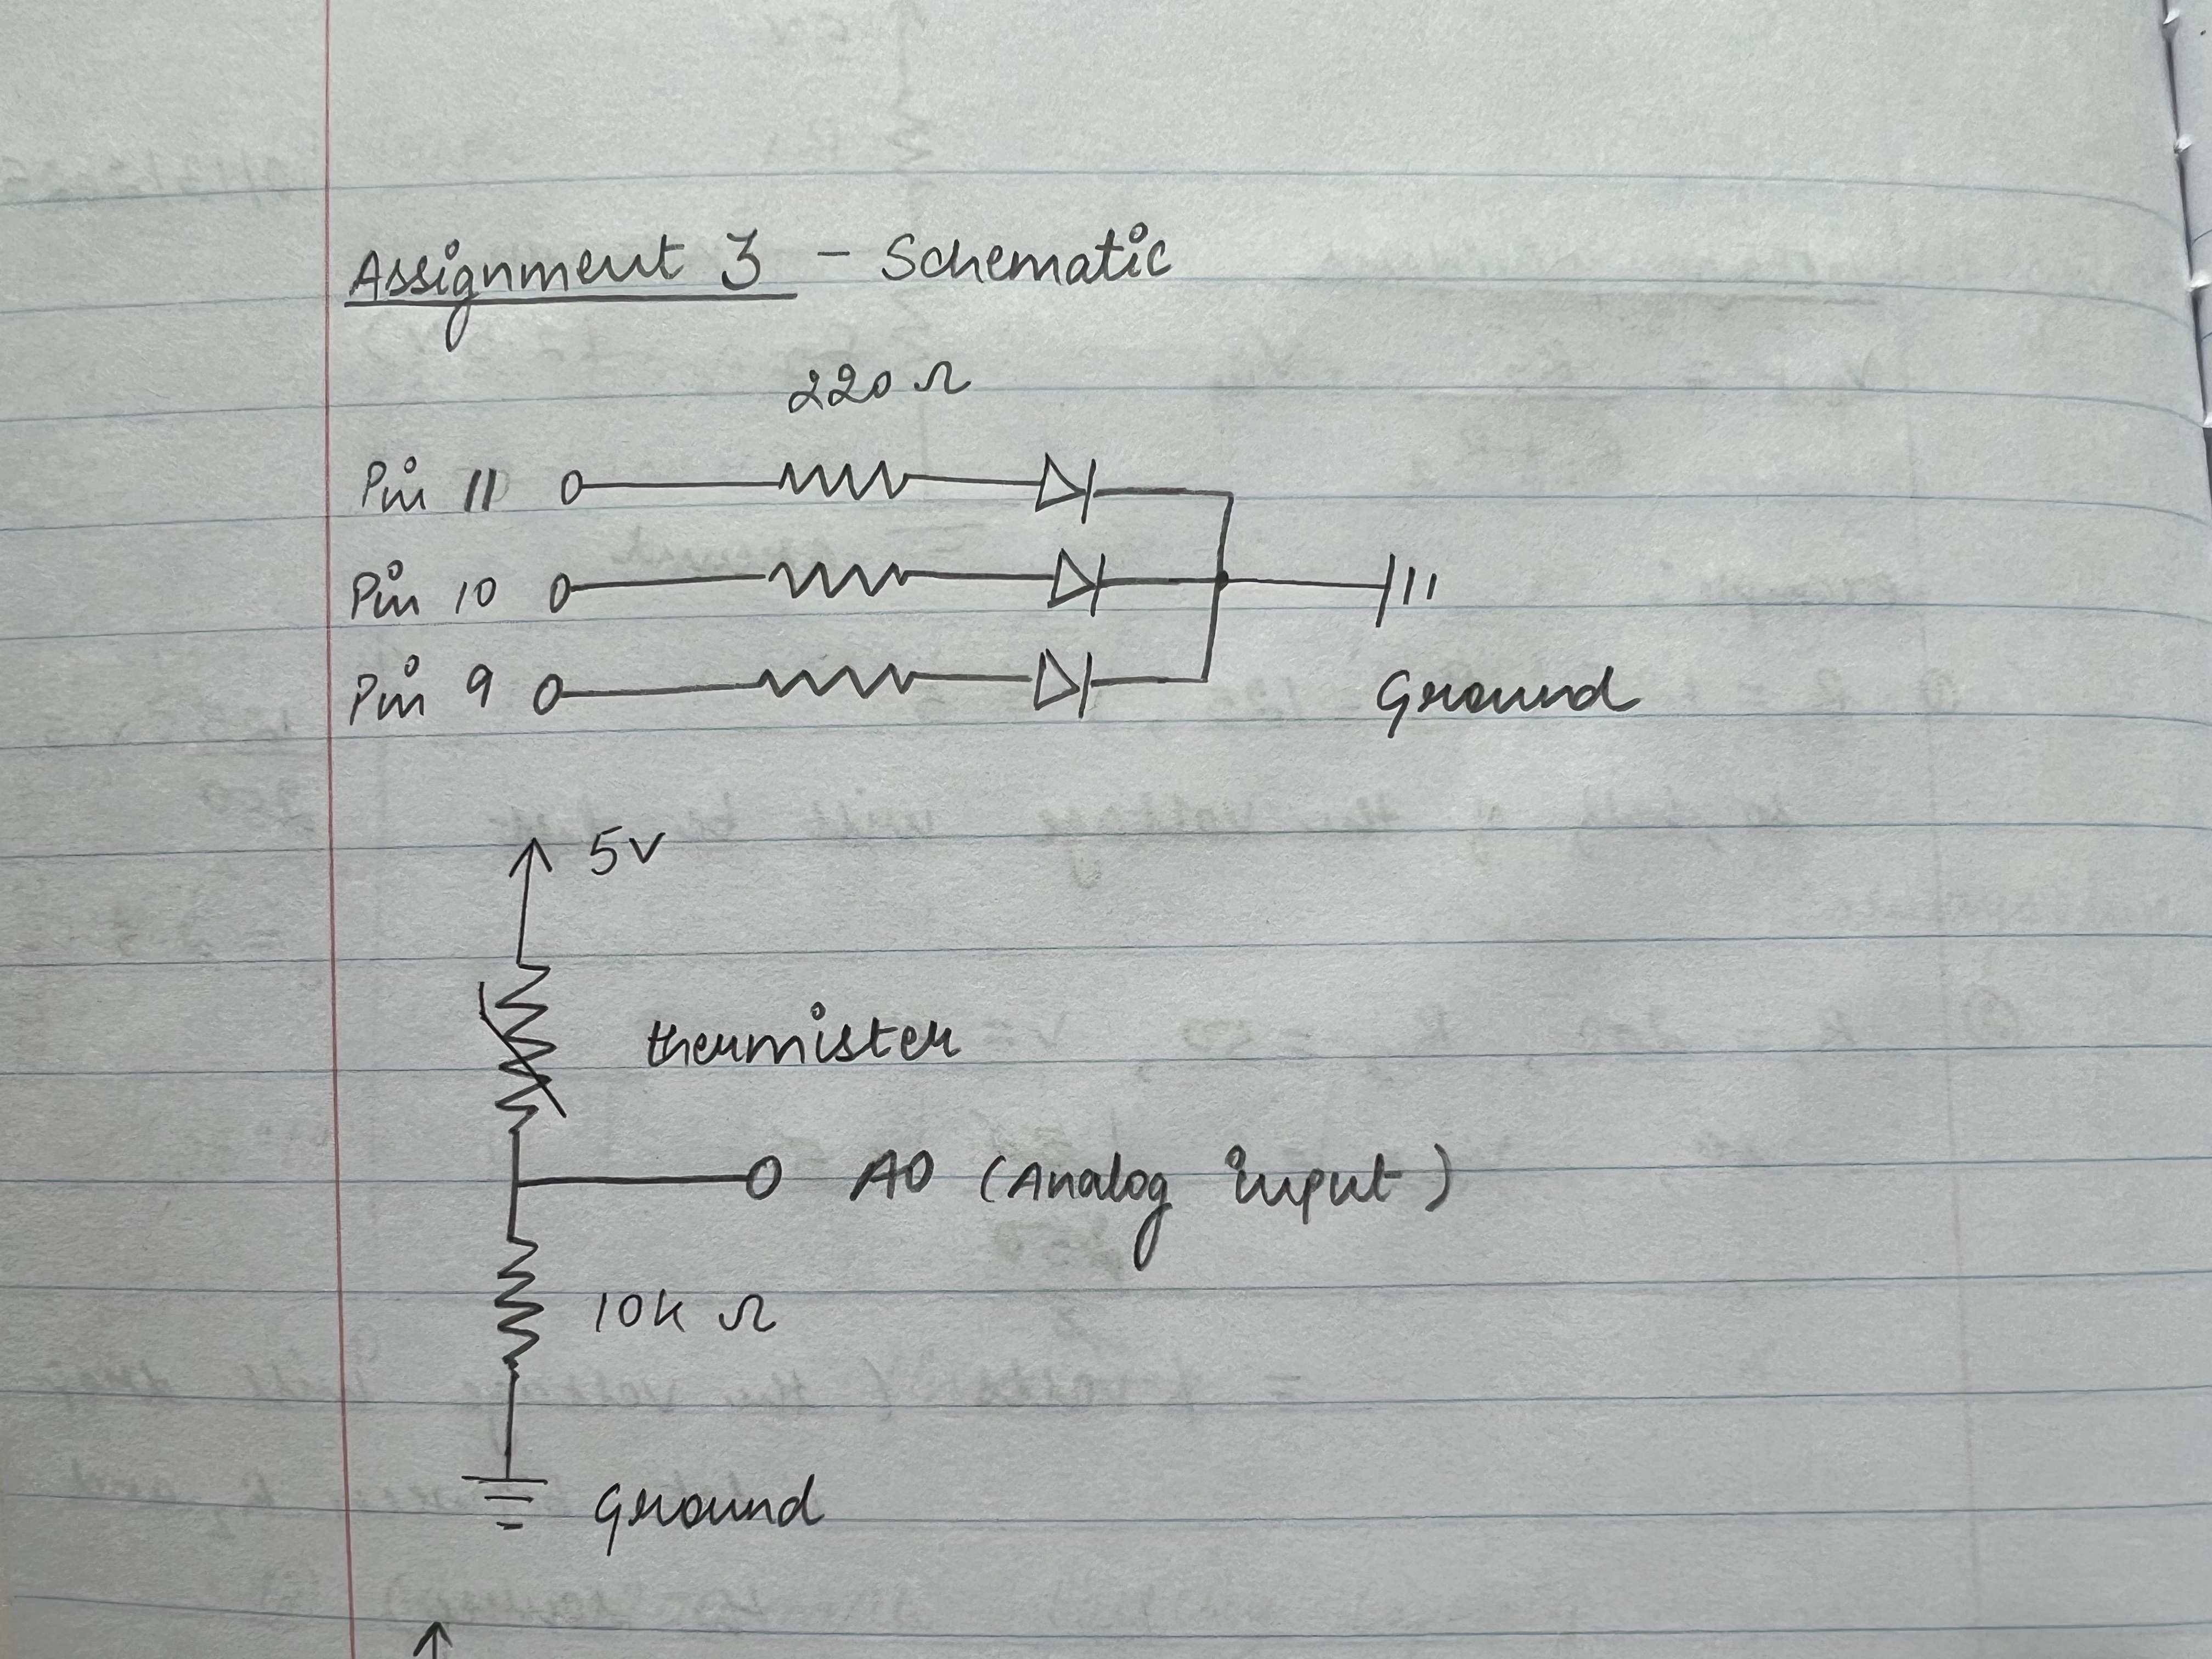 Assignment 3 - Schematic
220 Ω
Pin 11
Pin 10
Pin 9
Ground
5V
thermister
A0 (Analog input)
10k Ω
Ground